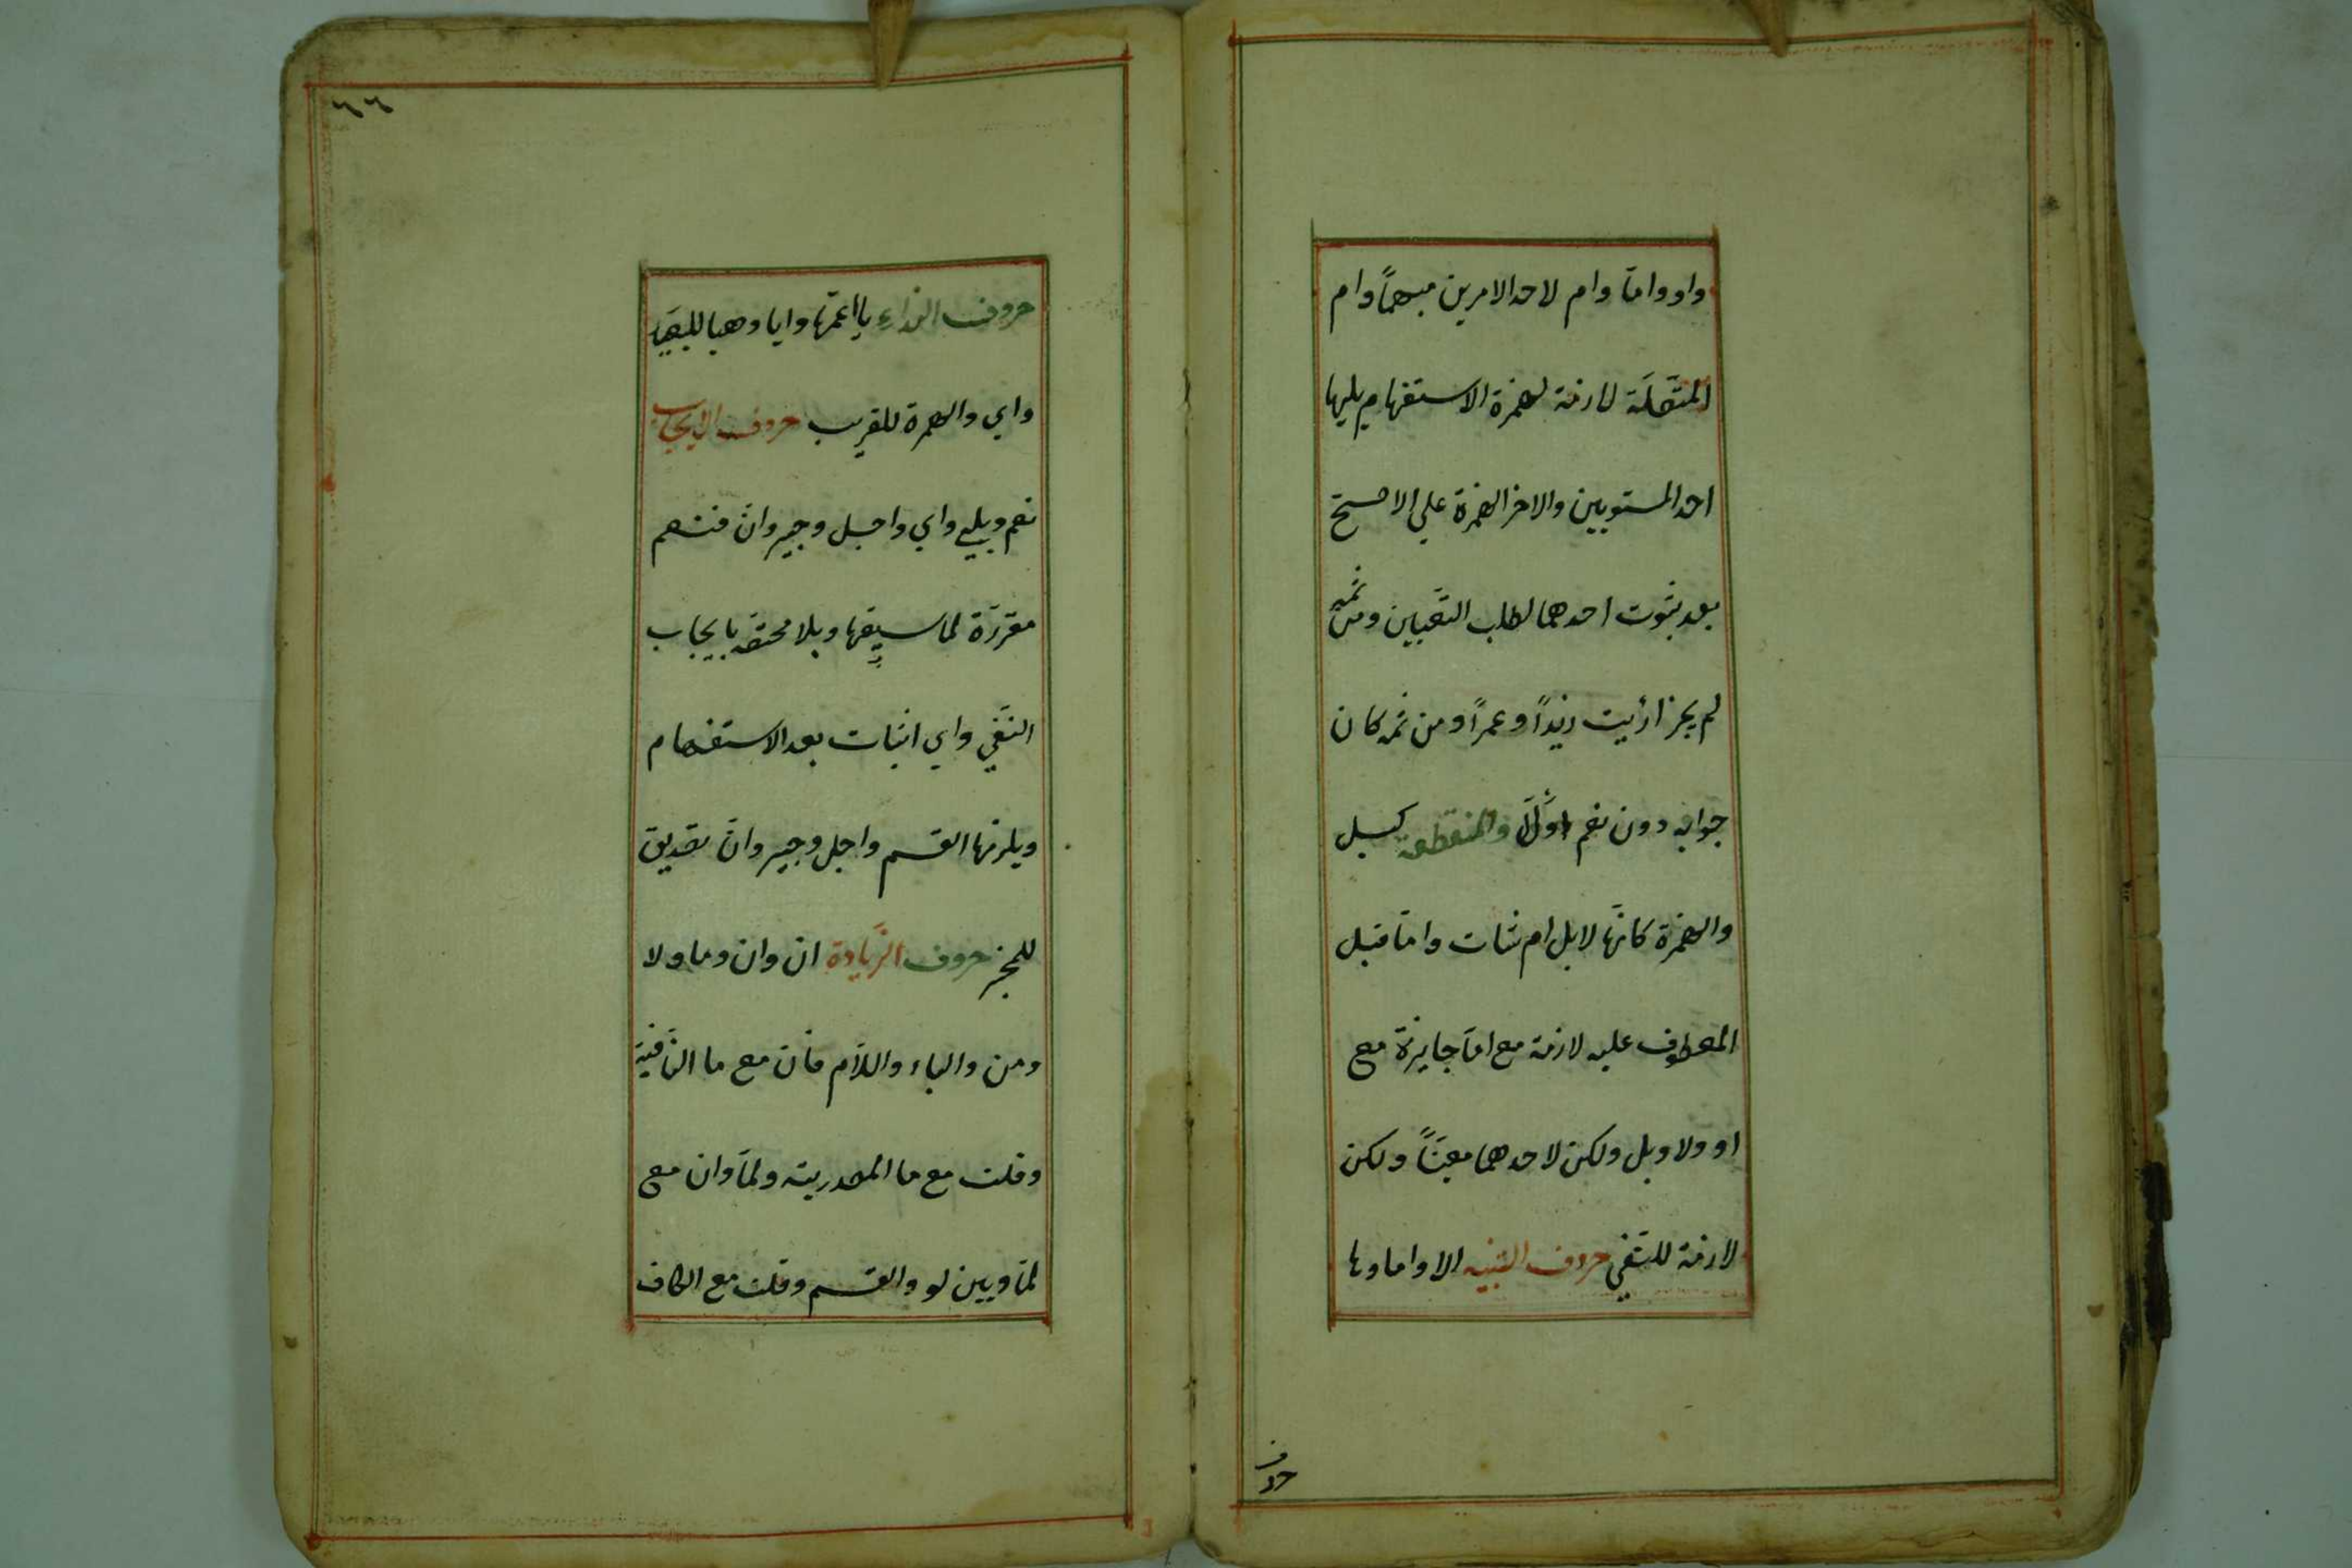 واو وامّا وام لاحد الامرين مبهماً وام
المتّصلة لازمة لهمزة الاستفهام يليها
احد المستويين والاخر الهمزة علي الاصحّ
بعد ثبوت احدهما لطلب التّعيين ومن ثمه
لم يجز ارأيت زيداً وعمراً ومن ثمه كان
جوابه دون نعم اولاً والمنقطعة كبل
والهمزة كانّها لابل ام شات وامّا قبل
المعطوف عليه لازمة مع امّا جايزة مع
او ولا وبل ولكن لاحدهما معيّناً ولكن
لازمة للنّفي حروف التّنبيه الا واما وها
حروف
٦٦
حروف النداء يا اعمّها وايا وهيا للبعيد
واي والهمزة للقريب حروف الايجاب
نعم وبلي واي واجل وجير وانّ فنعم
مقررّة لما سبقها وبلا مختصّة بايجاب
النّفي واي اثبات بعد الاستفهام
ويلزمها القسم واجل وجير وانّ تصديق
للمخبر حروف الزّيادة ان وان وما ولا
ومن والباء واللّام فان مع ما النّافية
وقلت مع ما المصدرية ولمّا وان مع
لمّا وبين لو والقسم وقلت مع الكاف